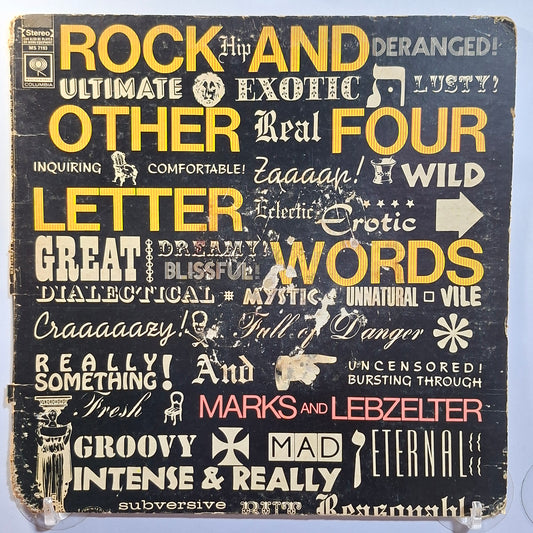 Stereo
MS 7193
COLUMBIA
ROCK Hip AND DERANGED!
ULTIMATE EXOTIC LUSTY?
OTHER Real FOUR
INQUIRING COMFORTABLE! Zaaaap! WILD
LETTER Eclectic Erotic
GREAT DREAMY! WORDS
BLISSFUL!
DIALECTICAL MYSTIC UNNATURAL VILE
Craaaaaazy! Full of Danger
REALLY SOMETHING! And UNCENSORED!
BURSTING THROUGH
Fresh MARKS AND LEBZELTER
GROOVY MAD ETERNAL
INTENSE & REALLY
subversive BUT Reasonable